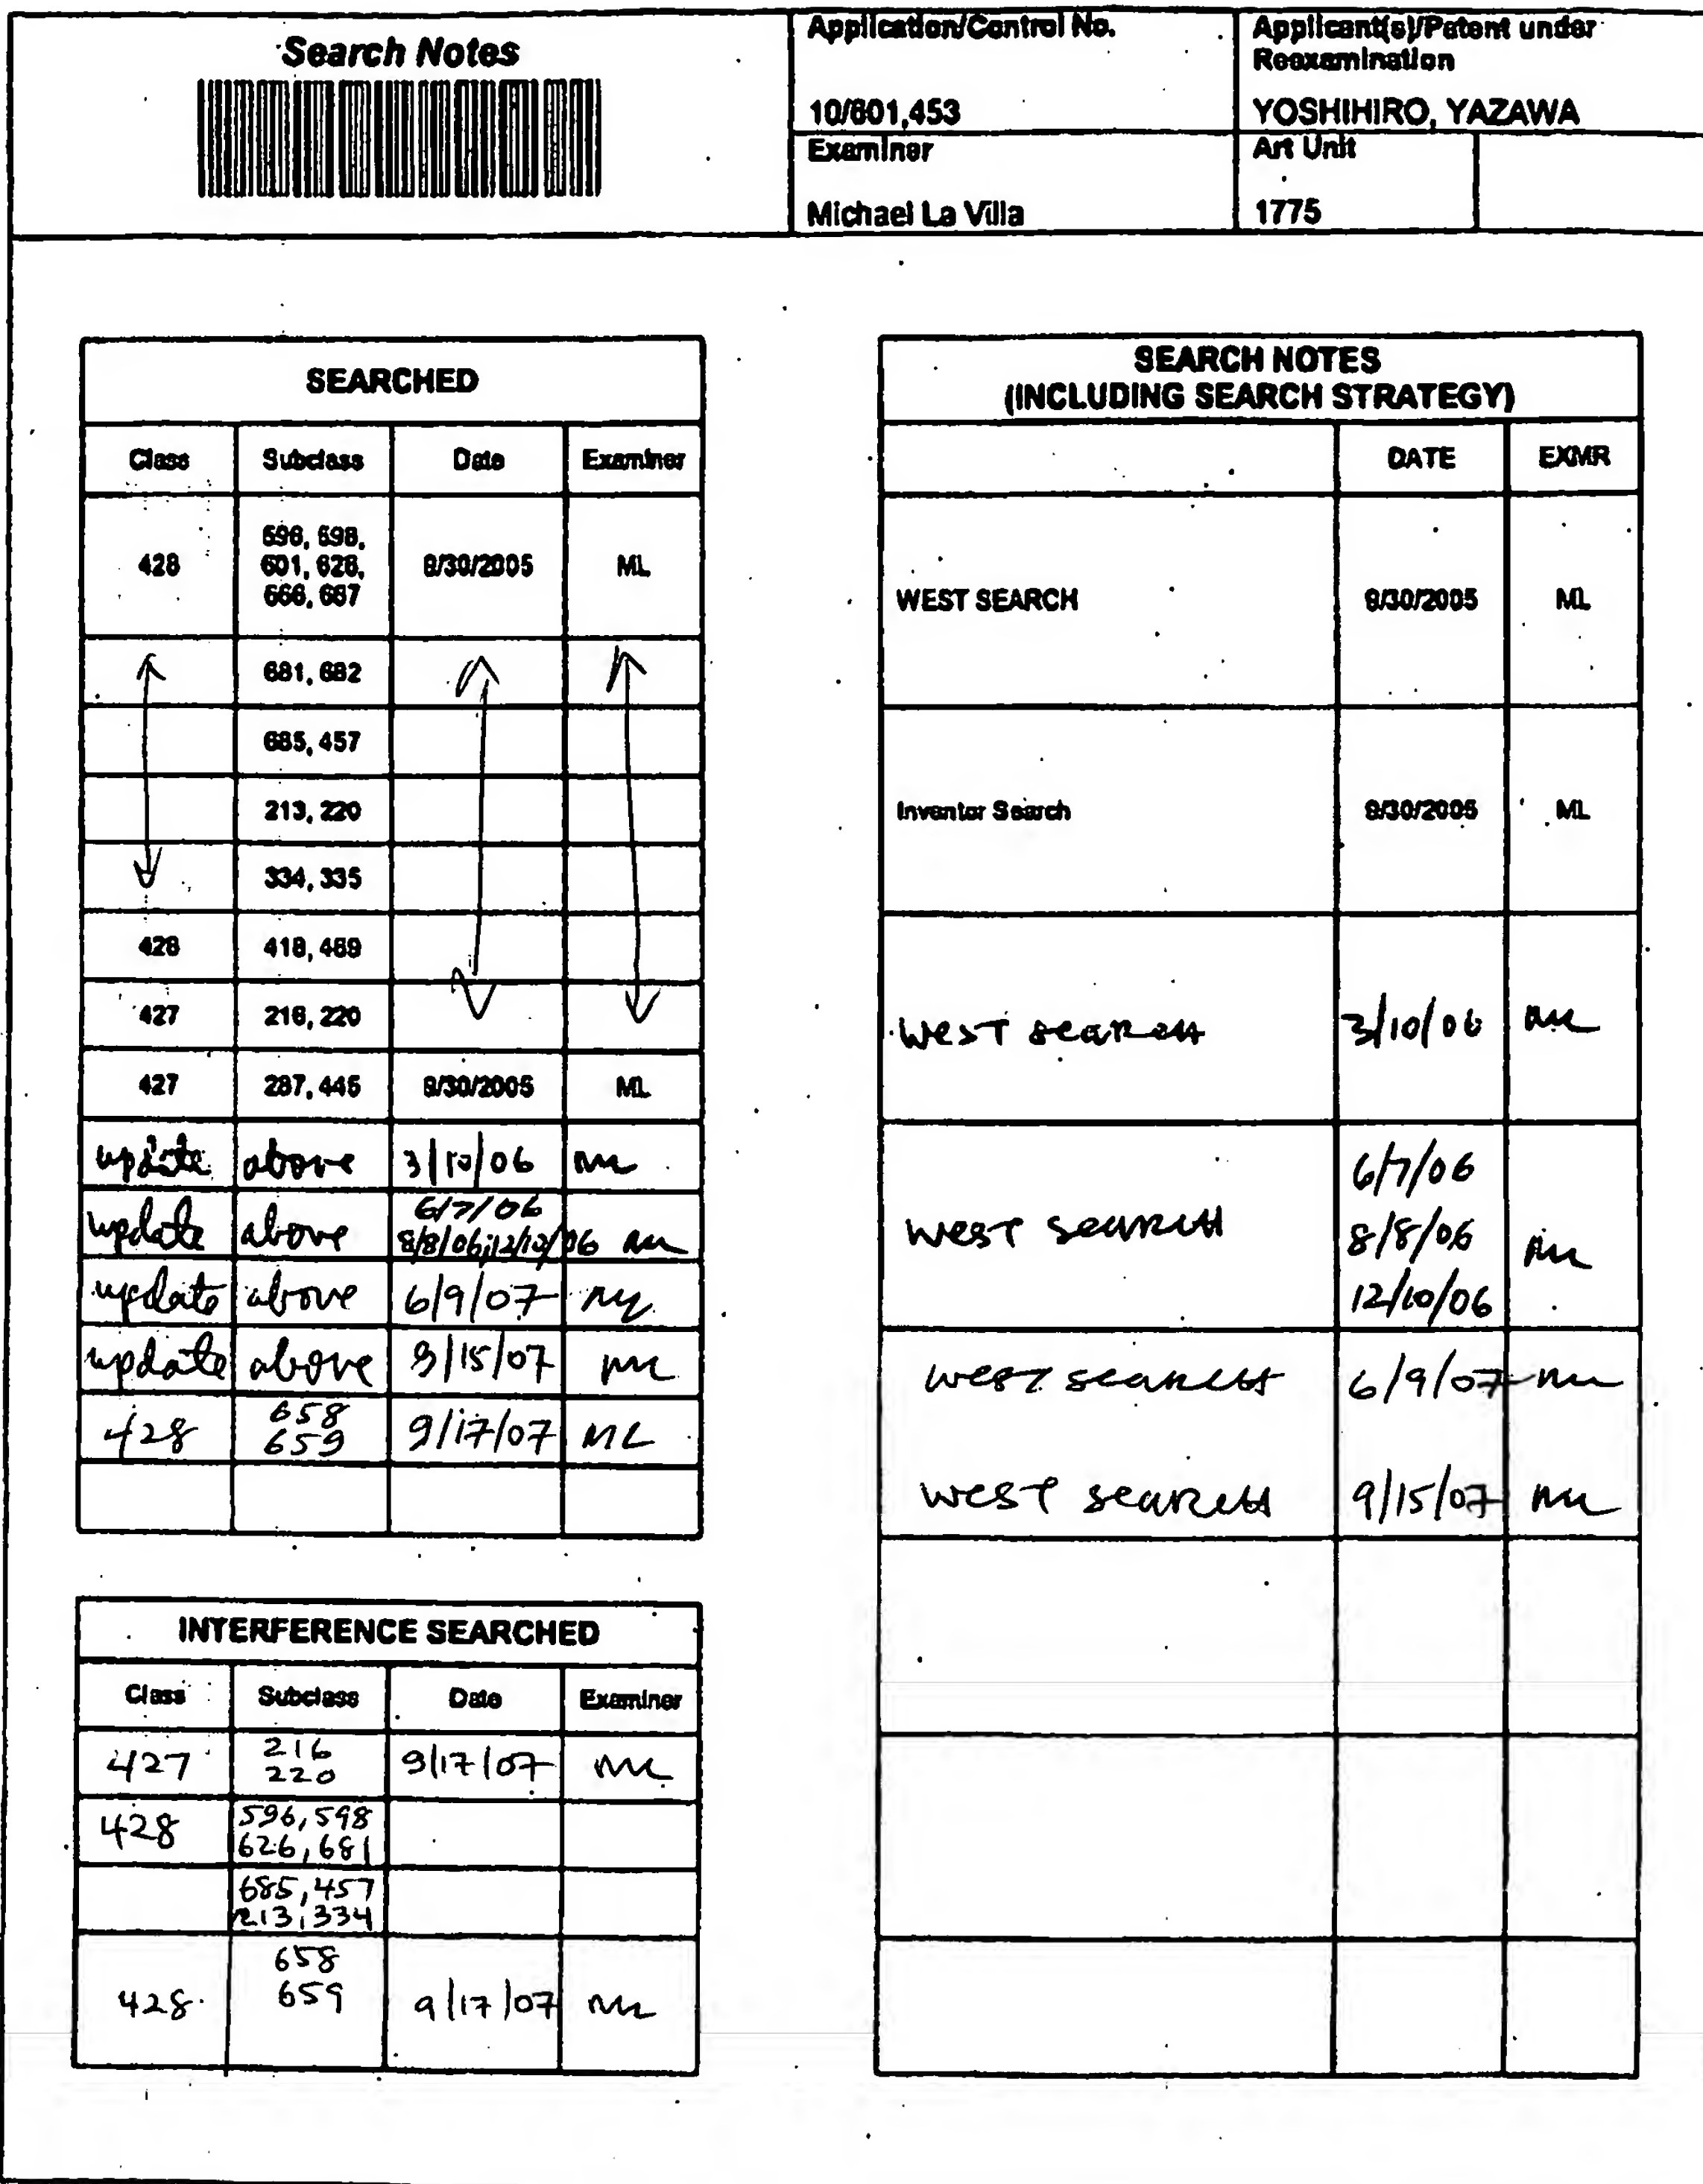 Search Notes
Application/Control No.
10/601,453
Applicant(s)/Patent under
Reexamination
YOSHIHIRO, YAZAWA
Examiner
Michael La Villa
Art Unit
1775
SEARCHED
Class Subclass Date Examiner
428 596, 598, 601, 626, 666, 667 9/30/2005 ML
681, 682
685, 457
213, 220
334, 335
428 418, 469
427 216, 220
427 287, 445 9/30/2005 ML
update above 3/10/06 ML
update above 6/7/06 8/8/06; 12/10/06 ML
update above 6/9/07 ML
update above 9/15/07 ML
428 658 659 9/17/07 ML
INTERFERENCE SEARCHED
Class Subclass Date Examiner
427 216 220 9/17/07 ML
428 596, 598 626, 681
685, 457 213, 334
428 658 659 9/17/07 ML
SEARCH NOTES
(INCLUDING SEARCH STRATEGY)
DATE EXMR
WEST SEARCH 9/30/2005 ML
Inventor Search 9/30/2005 ML
WEST SEARCH 3/10/06 ML
WEST SEARCH 6/7/06 8/8/06 12/10/06 ML
WEST SEARCH 6/9/07 ML
WEST SEARCH 9/15/07 ML